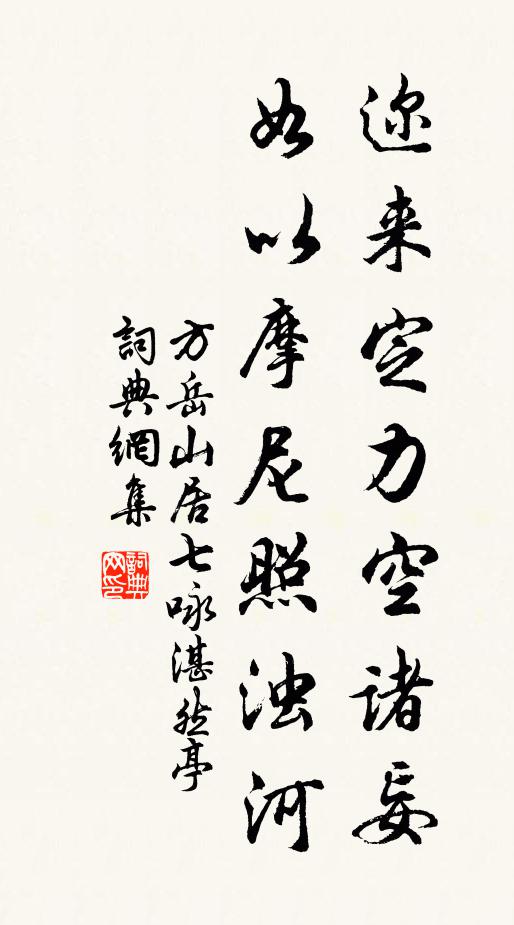 迩来定力空诸妄
如以摩尼照浊河
方岳山居七咏湛然亭
詞典網集
詞典网印